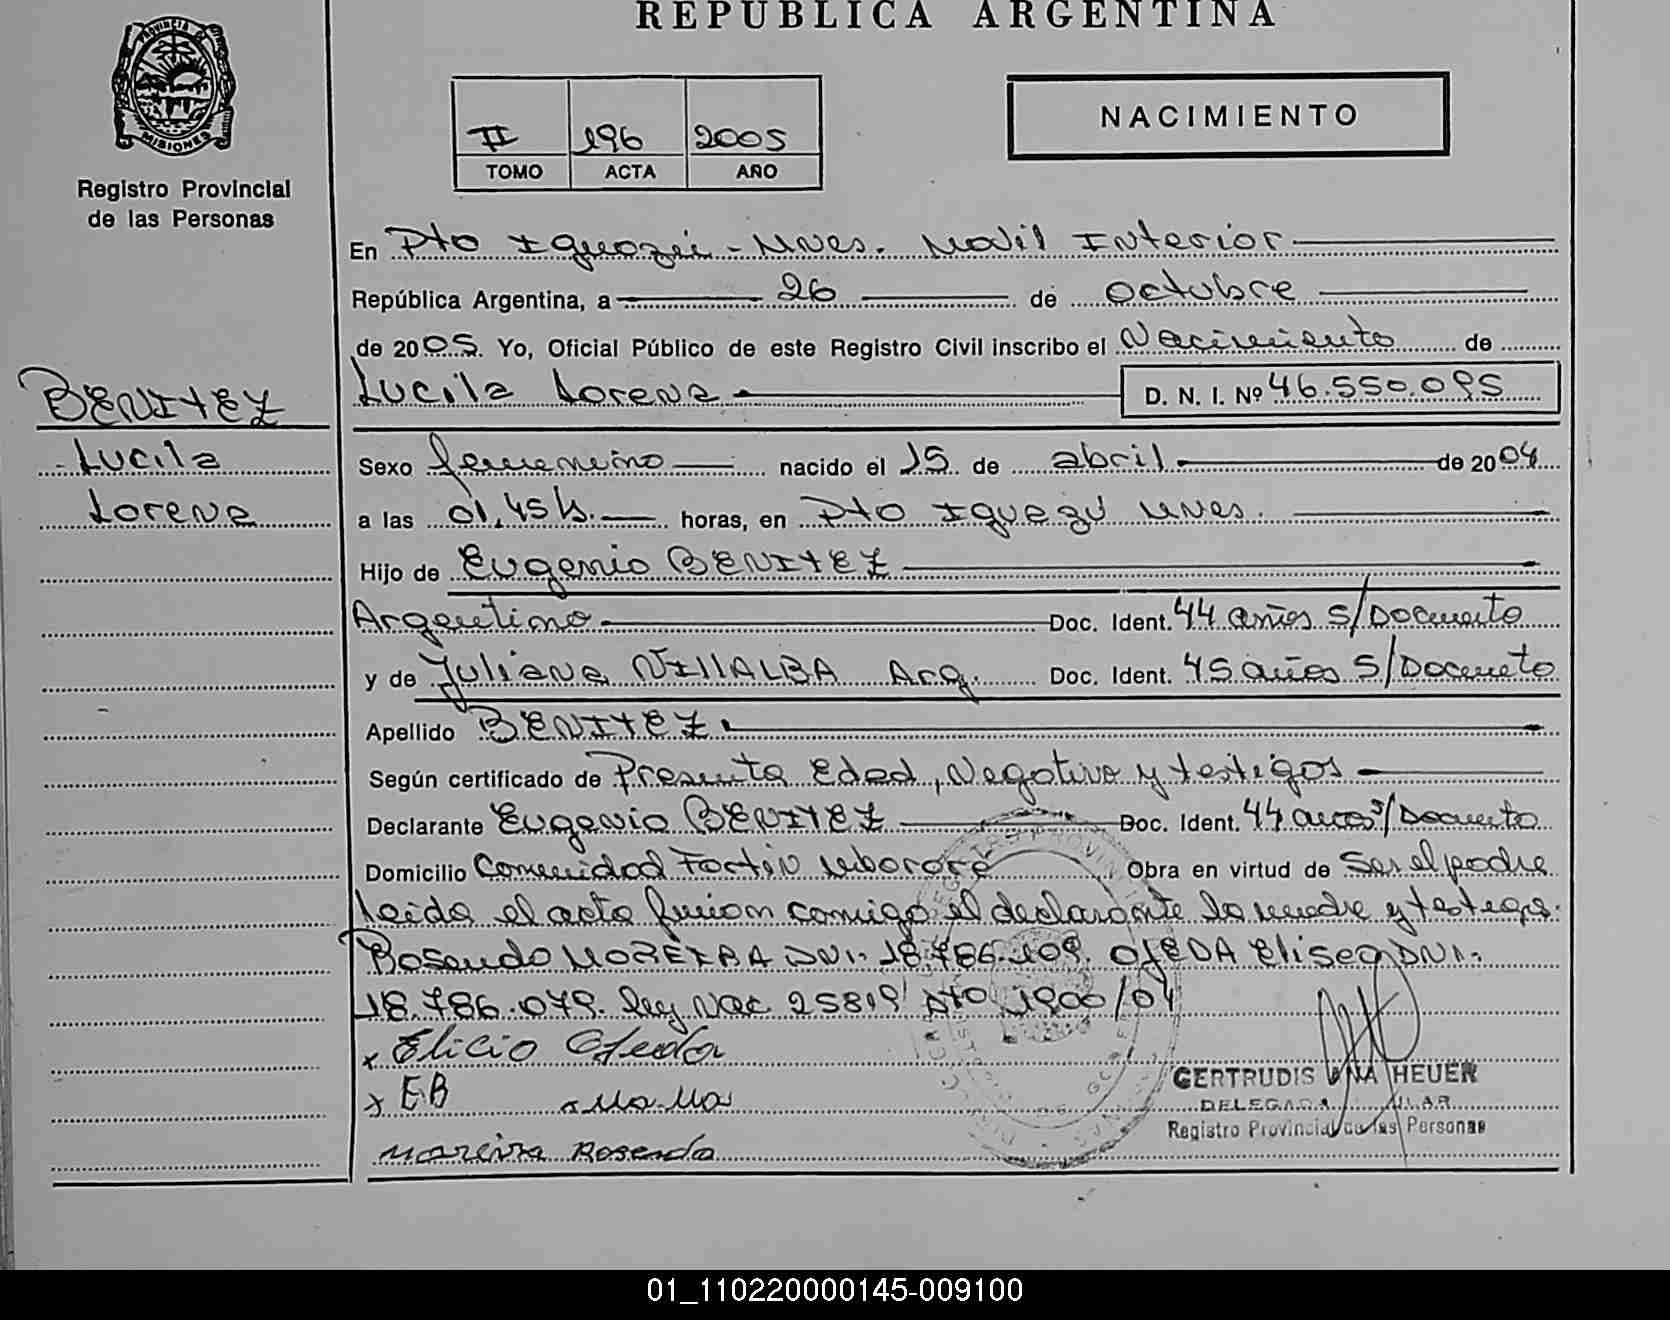 REPUBLICA ARGENTINA
PROVINCIA DE MISIONES
Registro Provincial
de las Personas
II 196 2005
TOMO ACTA AÑO
NACIMIENTO
En Pto Iguazú - Mnes. Movil Interior
República Argentina, a 26 de octubre
de 2005. Yo, Oficial Público de este Registro Civil inscribo el Nacimiento de
Lucila Lorena D. N. I. Nº 46.550.095
BENITEZ
Lucila
Lorena
Sexo femenino nacido el 15 de abril de 2004
a las 01,45 hs. horas, en Pto Iguazú Mnes.
Hijo de Eugenio BENITEZ
Argentino Doc. Ident. 44 años S/Documento
y de Juliana VILLALBA Arg. Doc. Ident. 45 años S/Documeto
Apellido BENITEZ
Según certificado de Presunta Edad, Negativo y testigos
Declarante Eugenio BENITEZ Doc. Ident. 44 años S/Documento
Domicilio Comunidad Fortín Mbororé Obra en virtud de Ser el padre
Leida el acta firman conmigo el declarante la madre y testigos.
Rosendo MOREIRA DNI. 18.786.109. OJEDA Eliseo DNI.
18.786.079. Ley Nac 25819 Dto 1900/04
x Elicio Ojeda
x EB x Ma Ma
Moreira Rosendo
GERTRUDIS ANA HEUER
DELEGADA
Registro Provincial de las Personas
01_110220000145-009100